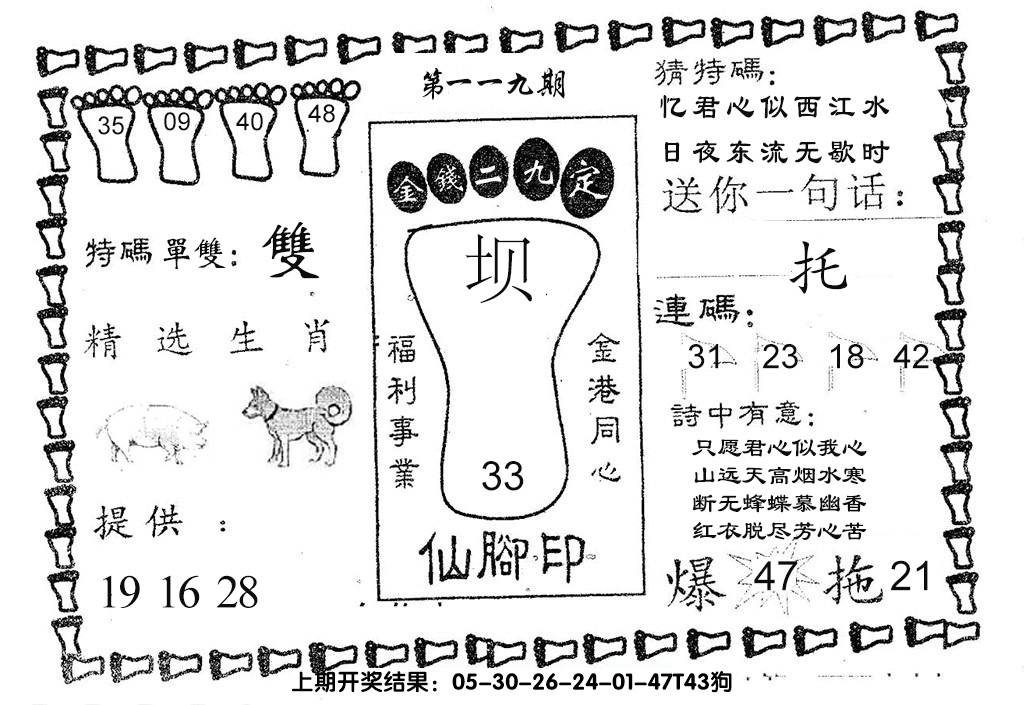 第一一九期
35 09 40 48
特碼單雙：雙
精选生肖
提供：
19 16 28
金錢二九定
坝
福利事業
金港同心
33
仙腳印
猜特碼：
忆君心似西江水
日夜东流无歇时
送你一句话：
托
連碼：
31 23 18 42
詩中有意：
只愿君心似我心
山远天高烟水寒
断无蜂蝶慕幽香
红衣脱尽芳心苦
爆 47 拖 21
上期开奖结果：05-30-26-24-01-47T43狗